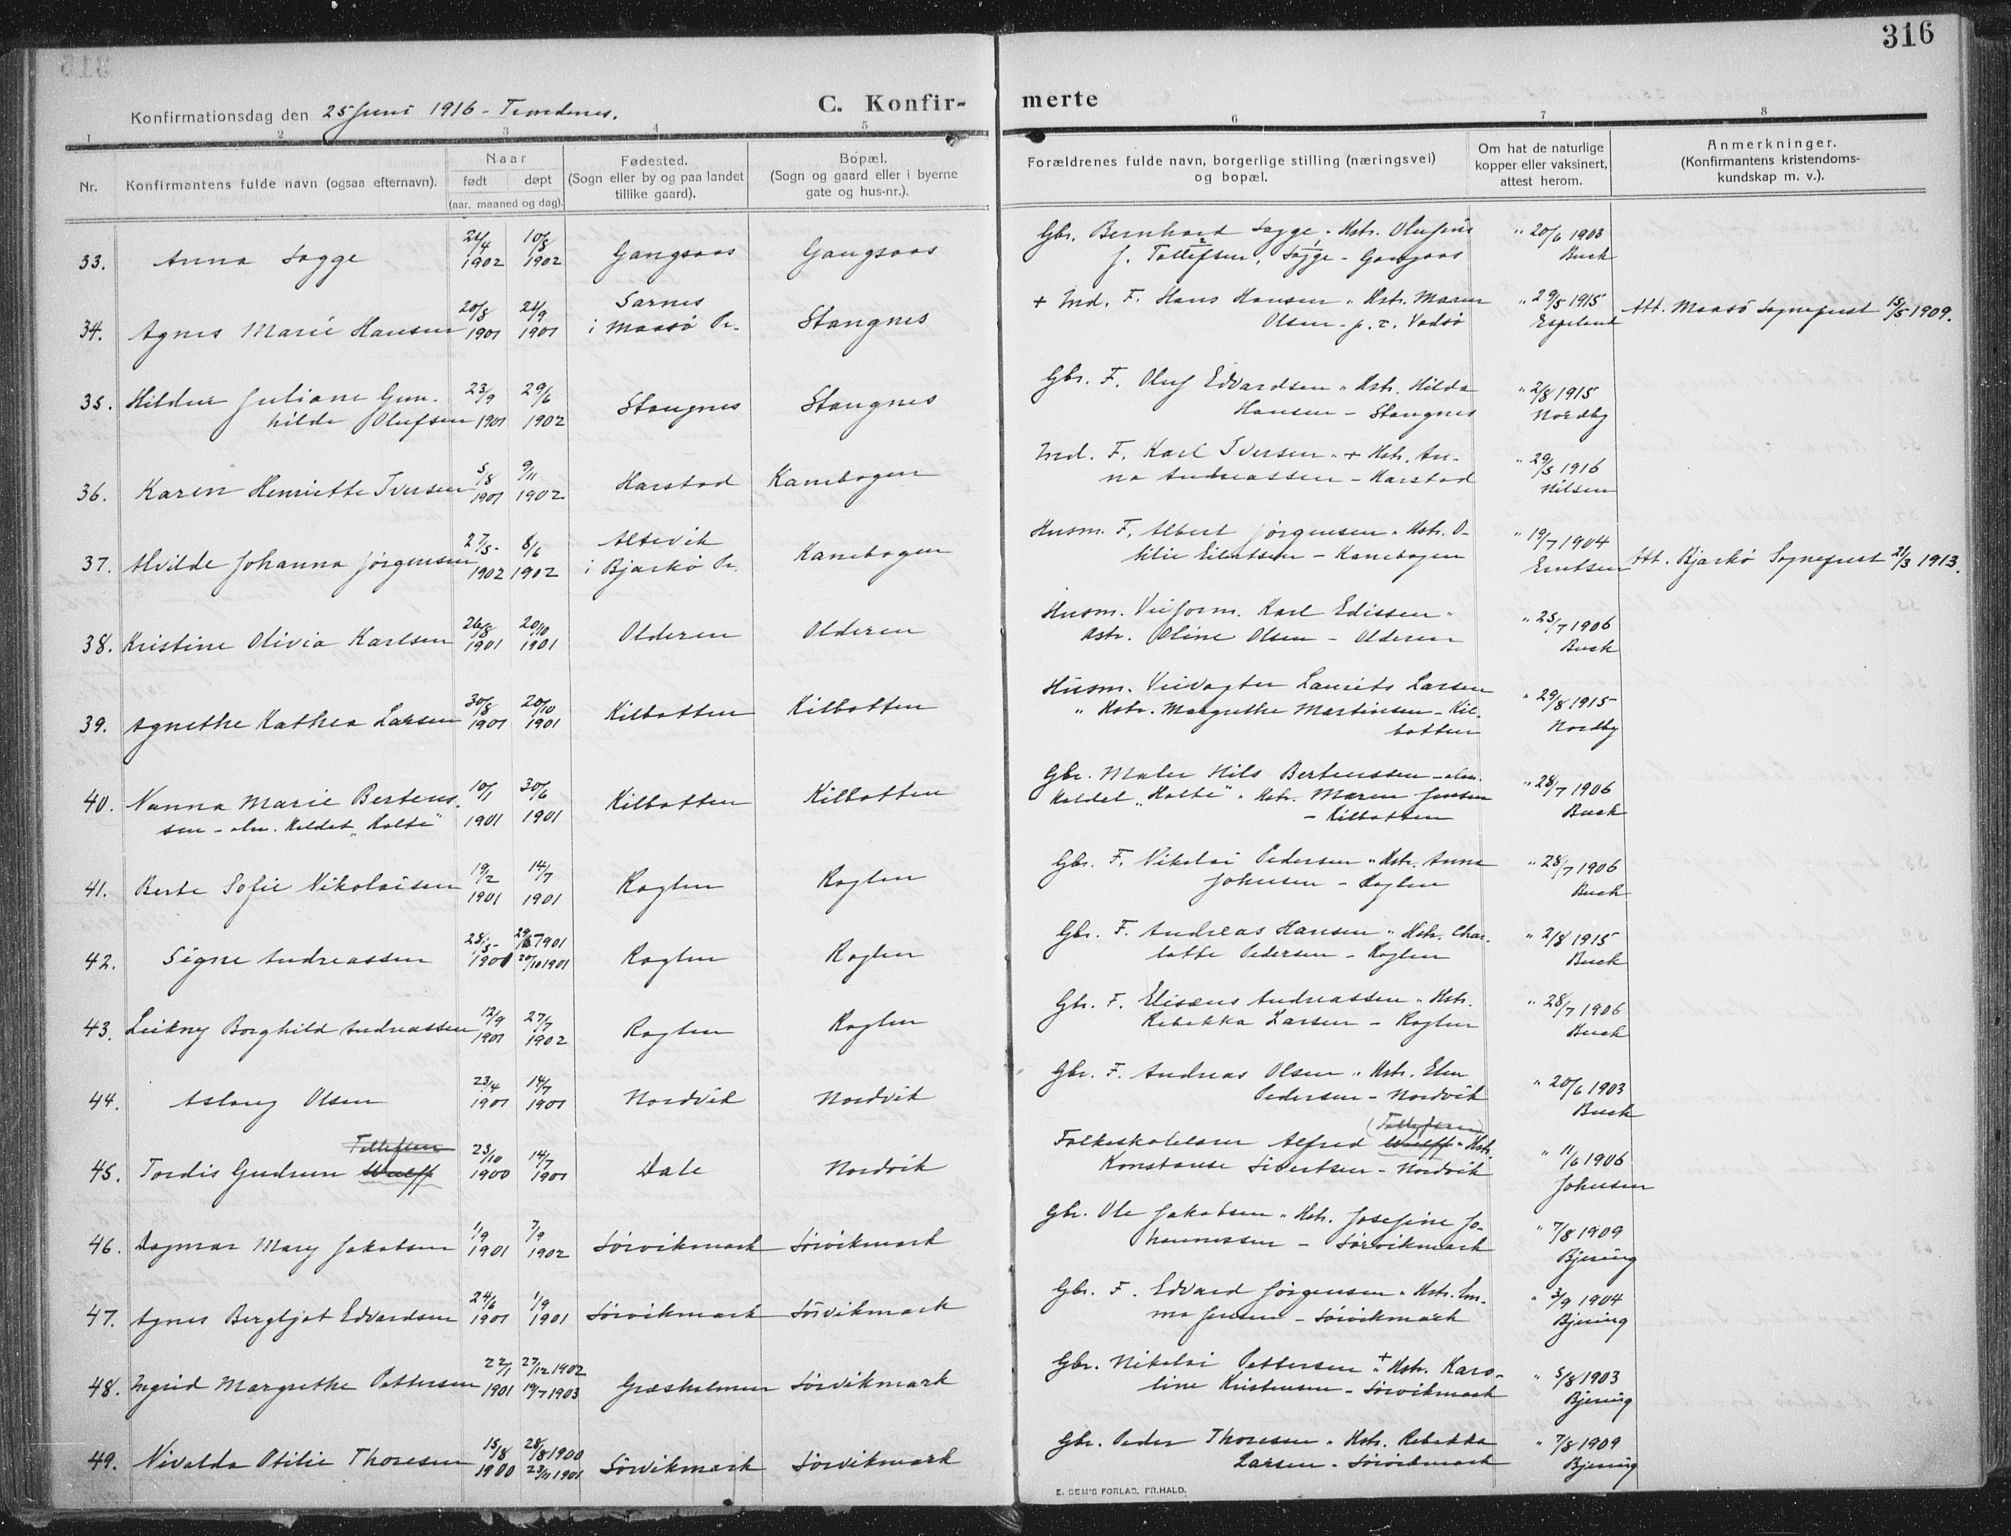 316
Konfirmationsdag den 25 Juni 1916 - Trondenes.
C. Konfir-
merte
1 2 3 4 5 6 7 8
Nr.
Konfirmantens fulde navn (ogsaa efternavn).
Naar
født døpt
(aar, maaned og dag).
Fødested.
(Sogn eller by og paa landet
tillike gaard).
Bopæl.
(Sogn og gaard eller i byerne
gate og hus-nr.).
Forældrenes fulde navn, borgerlige stilling (næringsvei)
og bopæl.
Om hat de naturlige
kopper eller vaksinert,
attest herom.
Anmerkninger.
(Konfirmantens kristendoms-
kundskap m. v.).
33. Anna Sagge 1902 10/8 1902 Gangsaas Gangsaas
Gbr. Bernhard Sagge " Hstr. Olufine
J. Tollefsen, Sagge - Gangsaas
" 20/6 1903
Buck
34. Agnes Marie Hansen 20/8 1901 21/9 1901
Sarnes
i Maasø Pr.
Stangnes
+ Ind. F. Hans Hansen " Hstr. Maren
Olsen - p. t. Vadsø
" 29/5 1915
Espelund
Att. Maasø Sogneprest 15/5 1909.
35. Hildur Juliane Gun-
hilde Olufsen
23/9 1901 29/6 1902 Stangnes Stangnes
Gbr. F. Oluf Edvardsen " Hstr. Hilda
Hansen - Stangnes
" 2/8 1915
Nordby
36. Karen Henriette Iversen 5/8 1901 9/11 1902 Harstad Kanebogen
Ind. F. Karl Iversen " + Hstr. An-
na Andreassen - Harstad
" 29/5 1916
Nilsen
37. Alvilde Johanna Jørgensen 27/5 1902 8/6 1902
Altevik
i Bjarkø Pr.
Kanebogen
Husm. F. Albert Jørgensen " Hstr. O-
tilie Eilertsen - Kanebogen
" 19/7 1904
Att. Bjarkø Sogneprest 21/3 1913.
38. Kristine Olivia Karlsen 26/8 1901 20/10 1901 Olderen Olderen
Husm. Veiform. Karl Edissen "
Hstr. Oline Olsen - Olderen
" 25/7 1906
Buck
39. Agnethe Kathea Larsen 30/8 1901 20/10 1901 Kilbotten Kilbotten
Husm. Veivogter Laurits Larsen
" Hstr. Margrethe Martinsen - Kil-
botten
" 29/8 1915
Nordby
40. Nanna Marie Bertens-
sen - alm. kaldet "Holte"
10/1 1901 30/6 1901 Kilbotten Kilbotten
Gbr. Maler Nils Bertenssen - alm.
kaldet "Holte" " Hstr. Maren Jensen
- Kilbotten
" 28/7 1906
Buck
41. Berte Sofie Nikolaisen 19/2 1901 14/7 1901 Røglen Røglen
Gbr. F. Nikolai Pedersen " Hstr. Anna
Johnsen - Røglen
" 28/7 1906
Buck
42. Signe Andreassen 28/5 1901 29/6 1901 20/10 1901 Røglen Røglen
Gbr. F. Andreas Hansen " Hstr. Char-
lotte Pedersen - Røglen
" 2/8 1915
Buck
43. Leikny Borghild Andreassen 12/9 1901 27/7 1902 Røglen Røglen
Gbr. F. Elisæus Andreassen " Hstr.
Rebekka Larsen - Røglen
" 28/7 1906
Buck
44. Aslaug Olsen 23/4 1901 14/7 1901 Nordvik Nordvik
Gbr. F. Andreas Olsen " Hstr. Elen
Pedersen - Nordvik
" 20/6 1903
Buck
45. Tordis Gudrun Wulff
Tollefsen
23/10 1900 14/7 1901 Dale Nordvik
(Tollefsen)
Folkeskolelærer Alfred Wulff " Hstr.
Konstanse Sivertsen - Nordvik
" 11/6 1906
Johnsen
46. Dagmar Mary Jakobsen 1/9 1901 7/9 1902 Sørvikmark Sørvikmark
Gbr. Ole Jakobsen " Hstr. Josefine Jo-
hannessen - Sørvikmark
" 7/8 1909
Bjering
47. Agnes Bergljot Edvardsen 24/6 1901 1/9 1901 Sørvikmark Sørvikmark
Gbr. F. Edvard Jørgensen " Hstr. Em-
ma Jensen - Sørvikmark
" 3/9 1904
Bjering
48. Ingrid Margrethe Pettersen 22/1 1901 27/12 1902 19/7 1903 Græsholmen Sørvikmark
Gbr. Nikolai Pettersen " + Hstr. Karo-
line Kristensen - Sørvikmark
" 5/8 1903
Bjering
49. Nivalda Otilie Thoresen 15/8 1900 28/8 1900 23/11 1901 Sørvikmark Sørvikmark
Gbr. Peder Thoresen " Hstr. Rebekka
Larsen - Sørvikmark
" 7/8 1909
Bjering
E. SEM'S FORLAG, FR.HALD.